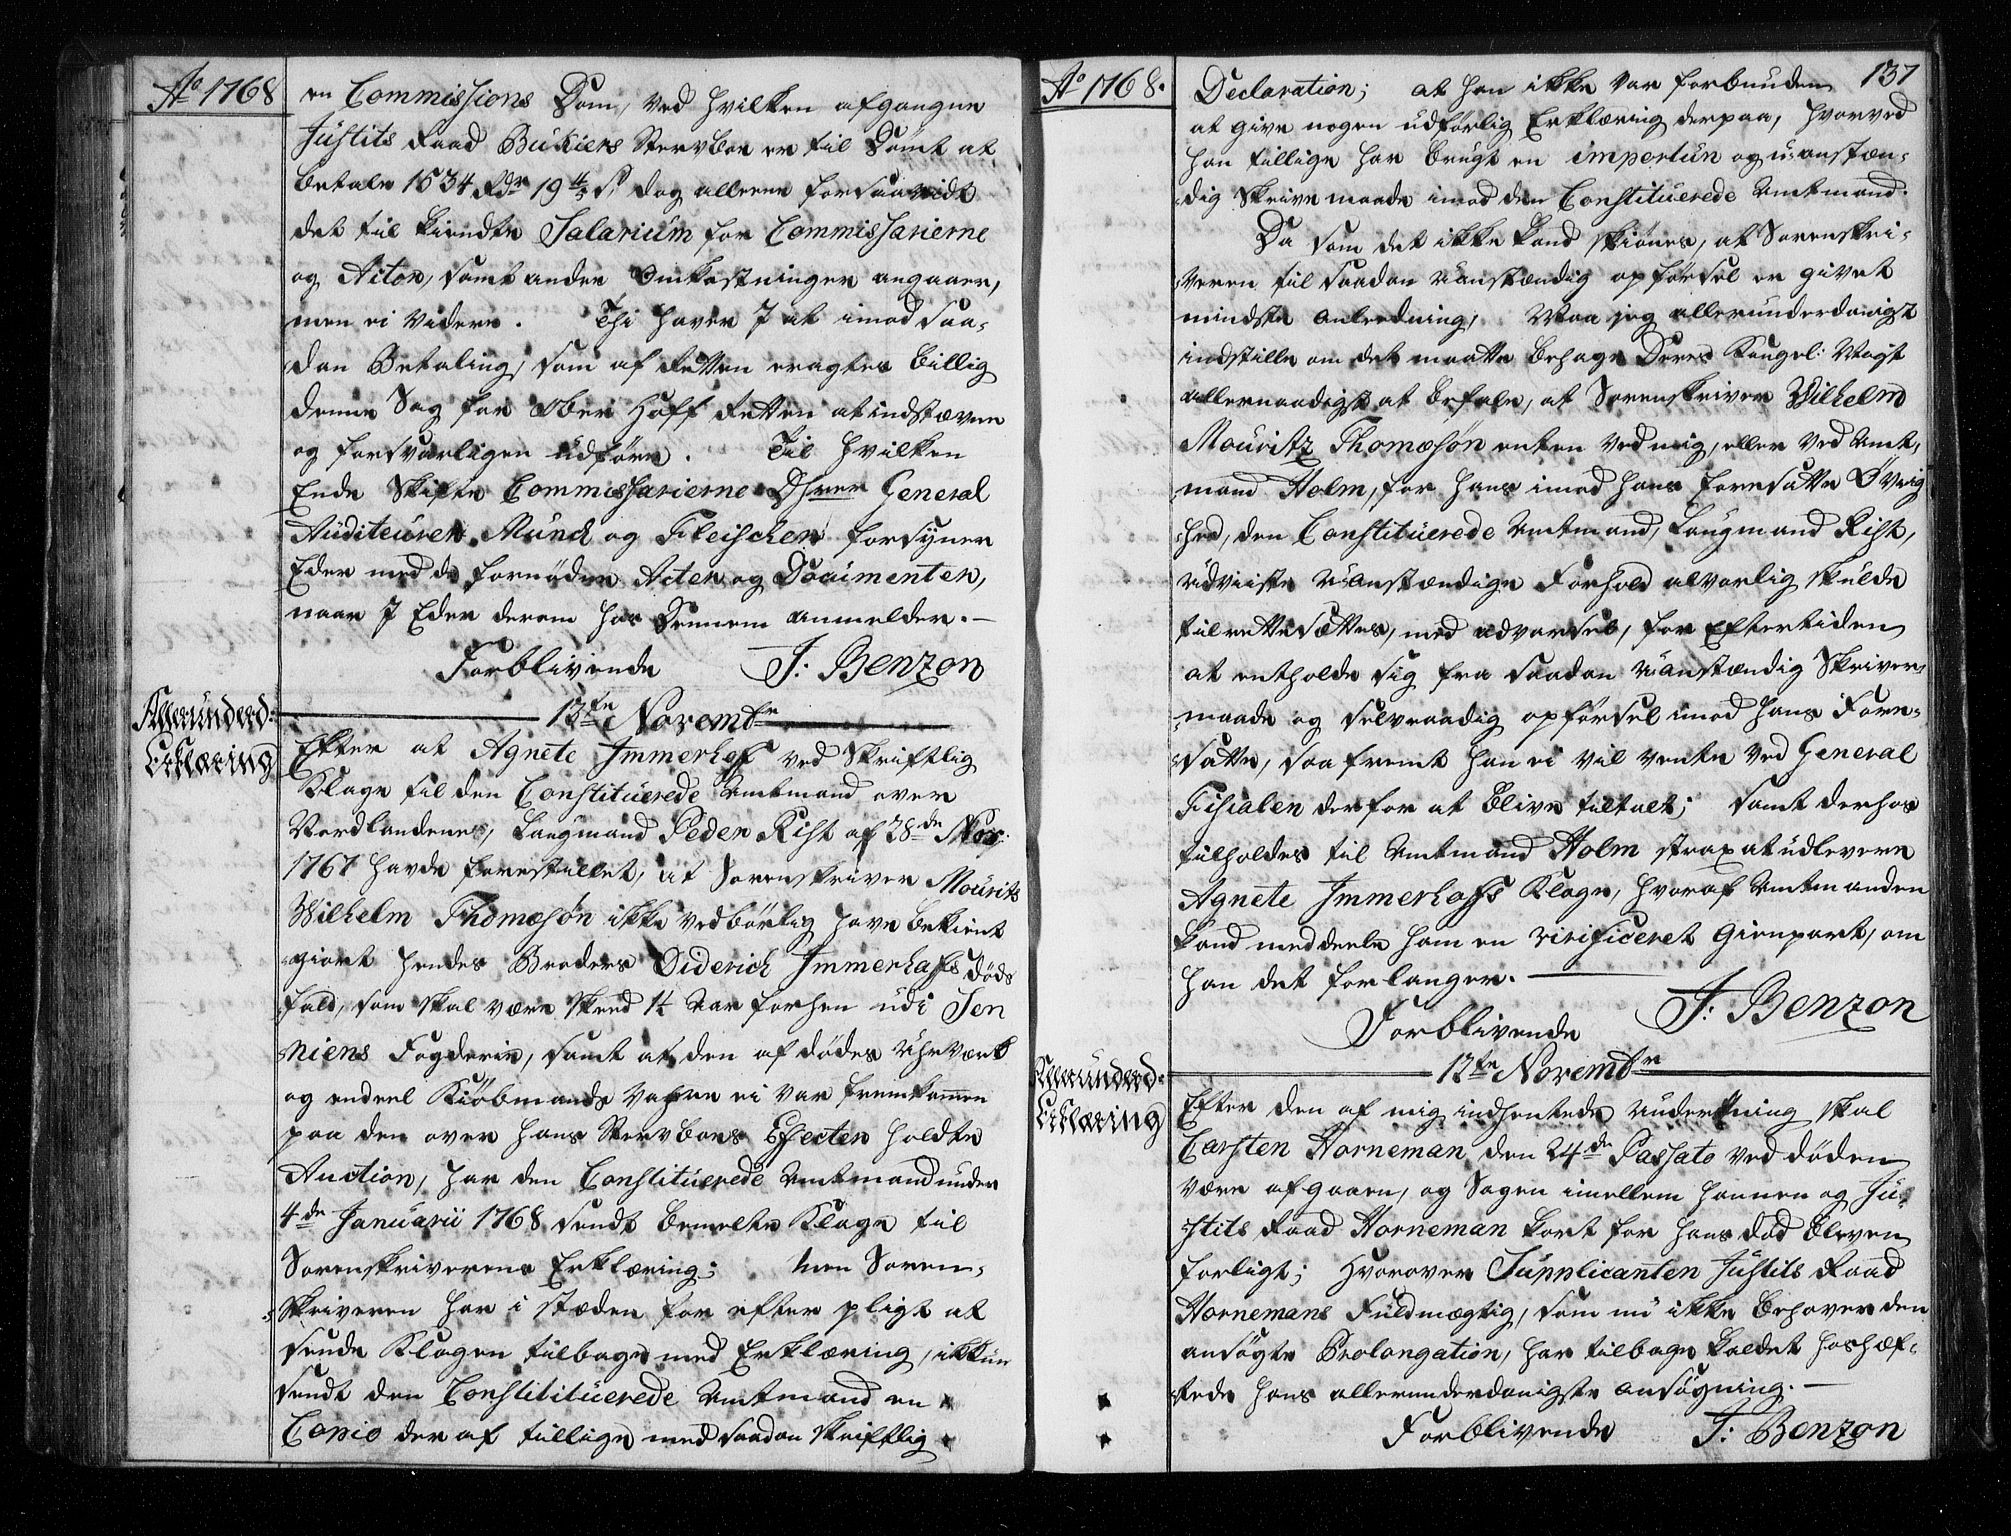 Ao 1768
en Commissions Dom, ved hvilken afgangne
Justits Raad Bükiers Stervboe er til Dömt at
betale 1534 Rdr 19 s, dog alleene forsaavidt
det til kiendte Salarium for Commissarierne
og Actor, samt andre Omkostninger angaaer,
men ei videre. Thi haver I at imod saa-
dan Betaling, som af Retten eragtes billig
denne Sag for Ober Hoff Retten at indstævne
og forsvarligen udföre. Til hvilken
Ende Skifte Commissarierne Dhrer General
Auditeuren Münch og Fleischer forsyner
Eder med de fornödne Acter og Documenter,
naar I Eder derom hos Dennem anmelder. —
Forblivende J: Benzon
12te Novembr
Allerunderd:
Erklæring
Efter at Agnete Immerhof ved Skriftlig
Klage til den Constituerede Amtmand over
Nordlandene, Laugmand Peder Rist af 28de Nov:
1767 havde forestillet, at Sorenskriver Mouritz
Wilhelm Thomæsön ikke vedbörlig have bekient
giort hendes Broders Diderich Immerhofs döds
fald, som skal være skeed 1¼ Aar forhen udi Sen
niens Fogderie, samt at den afdödes Uhrværk
og endeel Kiöbmands Vahre ei var fremkommen
paa den over hans Stervboes Effecter holdte
Auction, har den Constituerede Amtmand under
4de Januarii 1768 sendt bemelte Klage til
Sorenskriverens Erklæring; Men Soren-
skriveren har i stæden for efter pligt at
sende Klagen tilbage med Erklæring, ikkun
sendt den Constitituerede Amtmand en
Copie der af tillige med saadan skriftlig
Ao 1768.
137
Declaration; at han ikke var forbunden
at give nogen udförlig Erklæring derpaa, hvorved
han tillige har brugt en importun og uanstæn-
dig Skrivemaade imod den Constituerede Amtmand.
Da som det ikke kand skiönes, at Sorenskri-
veren til saadan uanstændig opförsel er givet
mindste anledning, Maa jeg allerunderdanigst
indstille om det maatte behage Deres Kongel: Mayt
allernaadigst at befale, at Sorenskriver Wilhelm
Mouritz Thomæsön enten ved mig, eller ved Amt-
mand Holm, for hans imod hans foresatte Övrig
hed, den Constituerede Amtmand, Laugmand Rist,
udviiste uanstændige Forhold alvorlig skulde
tilrettesættes, med advarsel, for Eftertiden
at entholde sig fra saadan uanstændig Skriver-
maade og selvraadig opförsel imod hans Fore-
satte, saa fremt han ei vil vente ved General
Fiscalen derfor at blive tiltalt; samt derhos
tilholdes til Amtmand Holm strax at udlevere
Agnete Immerhofs Klage, hvoraf Amtmanden
kand meddeele ham en vitificeret Gienpart, om
han det forlanger. —
Forblivende J: Benzon
12te Novembr
Allerunderd:
Erklæring
Efter den af mig indhentede Underretning skal
Carsten Horneman den 24de Passato ved döden
være afgaaen, og Sagen imellem hannem og Ju-
stits Raad Horneman kort for hans död bleven
forligt; Hvorover Supplicanten Justits Raad
Hornemans Fuldmægtig, som nu ikke behöver den
ansögte Prolongation, har tilbage kaldet hoshæf-
tede hans allerunderdanigste ansögning. —
Forblivende J: Benzon